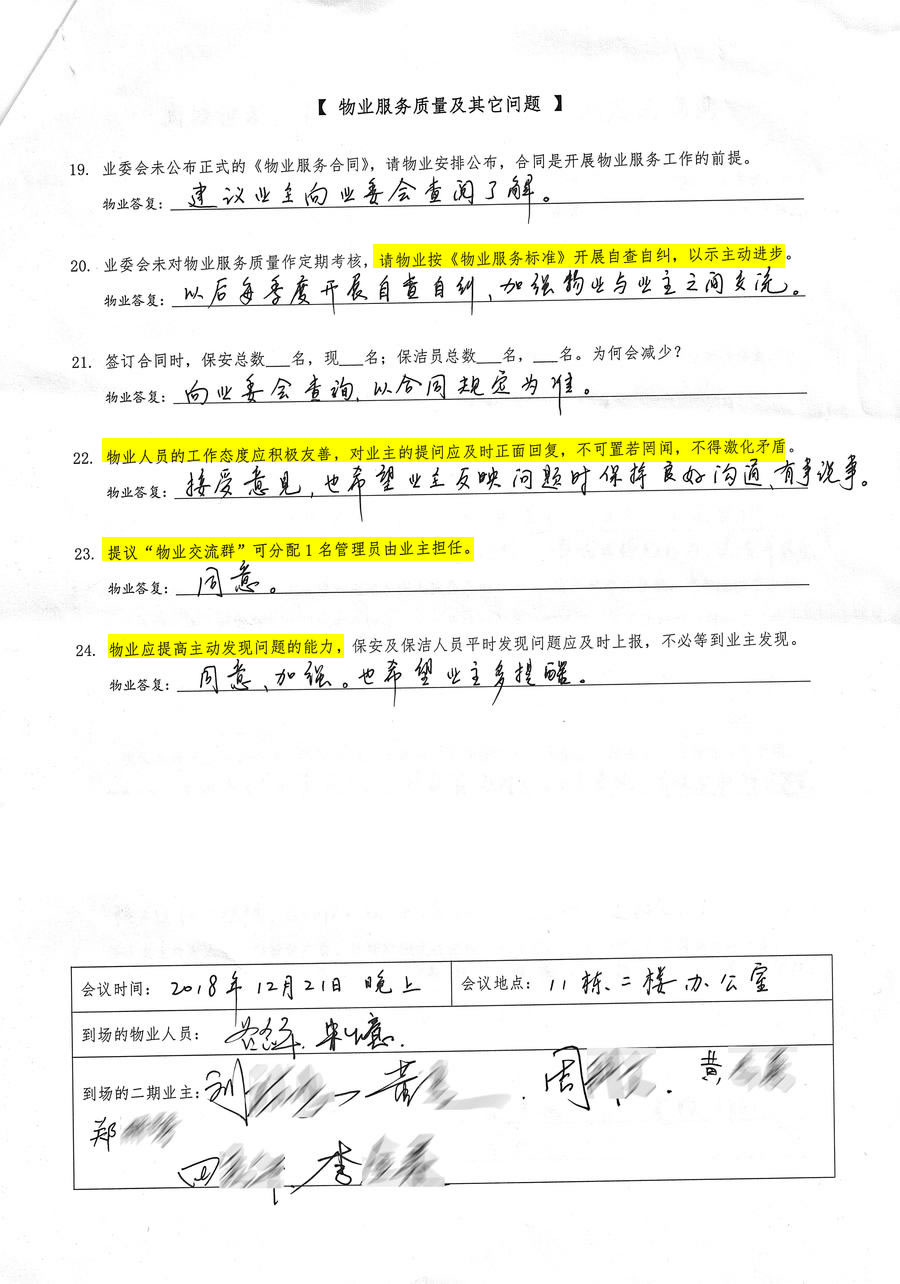 【 物业服务质量及其它问题 】
19. 业委会未公布正式的《物业服务合同》，请物业安排公布，合同是开展物业服务工作的前提。
物业答复：建议业主向业委会查阅了解。
20. 业委会未对物业服务质量作定期考核，请物业按《物业服务标准》开展自查自纠，以示主动进步。
物业答复：以后每季度开展自查自纠、加强物业与业主之间交流。
21. 签订合同时，保安总数___名，现___名；保洁员总数___名，___名。为何会减少？
物业答复：向业委会查询，以合同规定为准。
22. 物业人员的工作态度应积极友善，对业主的提问应及时正面回复，不可置若罔闻，不得激化矛盾。
物业答复：接受意见，也希望业主反映问题时保持良好沟通，有事说事。
23. 提议“物业交流群”可分配 1 名管理员由业主担任。
物业答复：同意。
24. 物业应提高主动发现问题的能力，保安及保洁人员平时发现问题应及时上报，不必等到业主发现。
物业答复：同意、加强。也希望业主多提醒。
会议时间：2018年12月21日 晚上
会议地点：11栋二楼办公室
到场的物业人员：
到场的二期业主：刘 黄 周 黄
郑
李